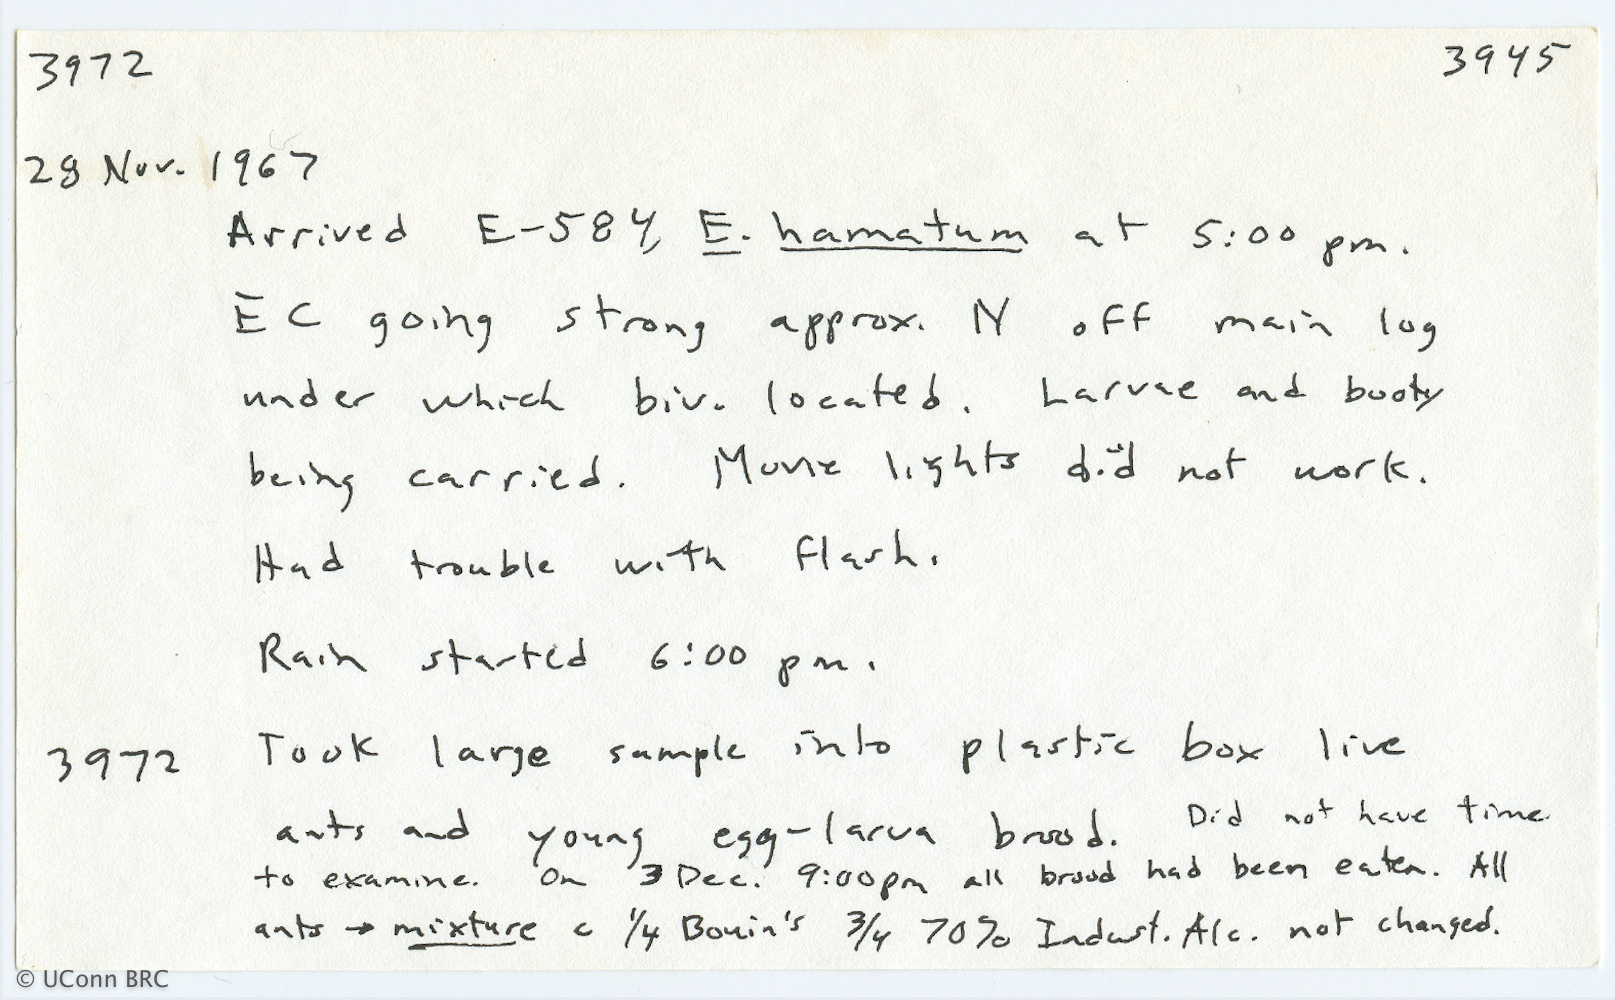 3972 3945
28 Nov. 1967
Arrived E-584, E. hamatum at 5:00 pm.
EC going strong approx. N off main log
under which biv. located. Larvae and booty
being carried. Movie lights did not work.
Had trouble with flash.
Rain started 6:00 pm.
3972 Took large sample into plastic box live
ants and young egg-larva brood. Did not have time
to examine. On 3 Dec. 9:00pm all brood had been eaten. All
ants → mixture c 1/4 Bouin's 3/4 70% Indust. Alc. not changed.
© UConn BRC